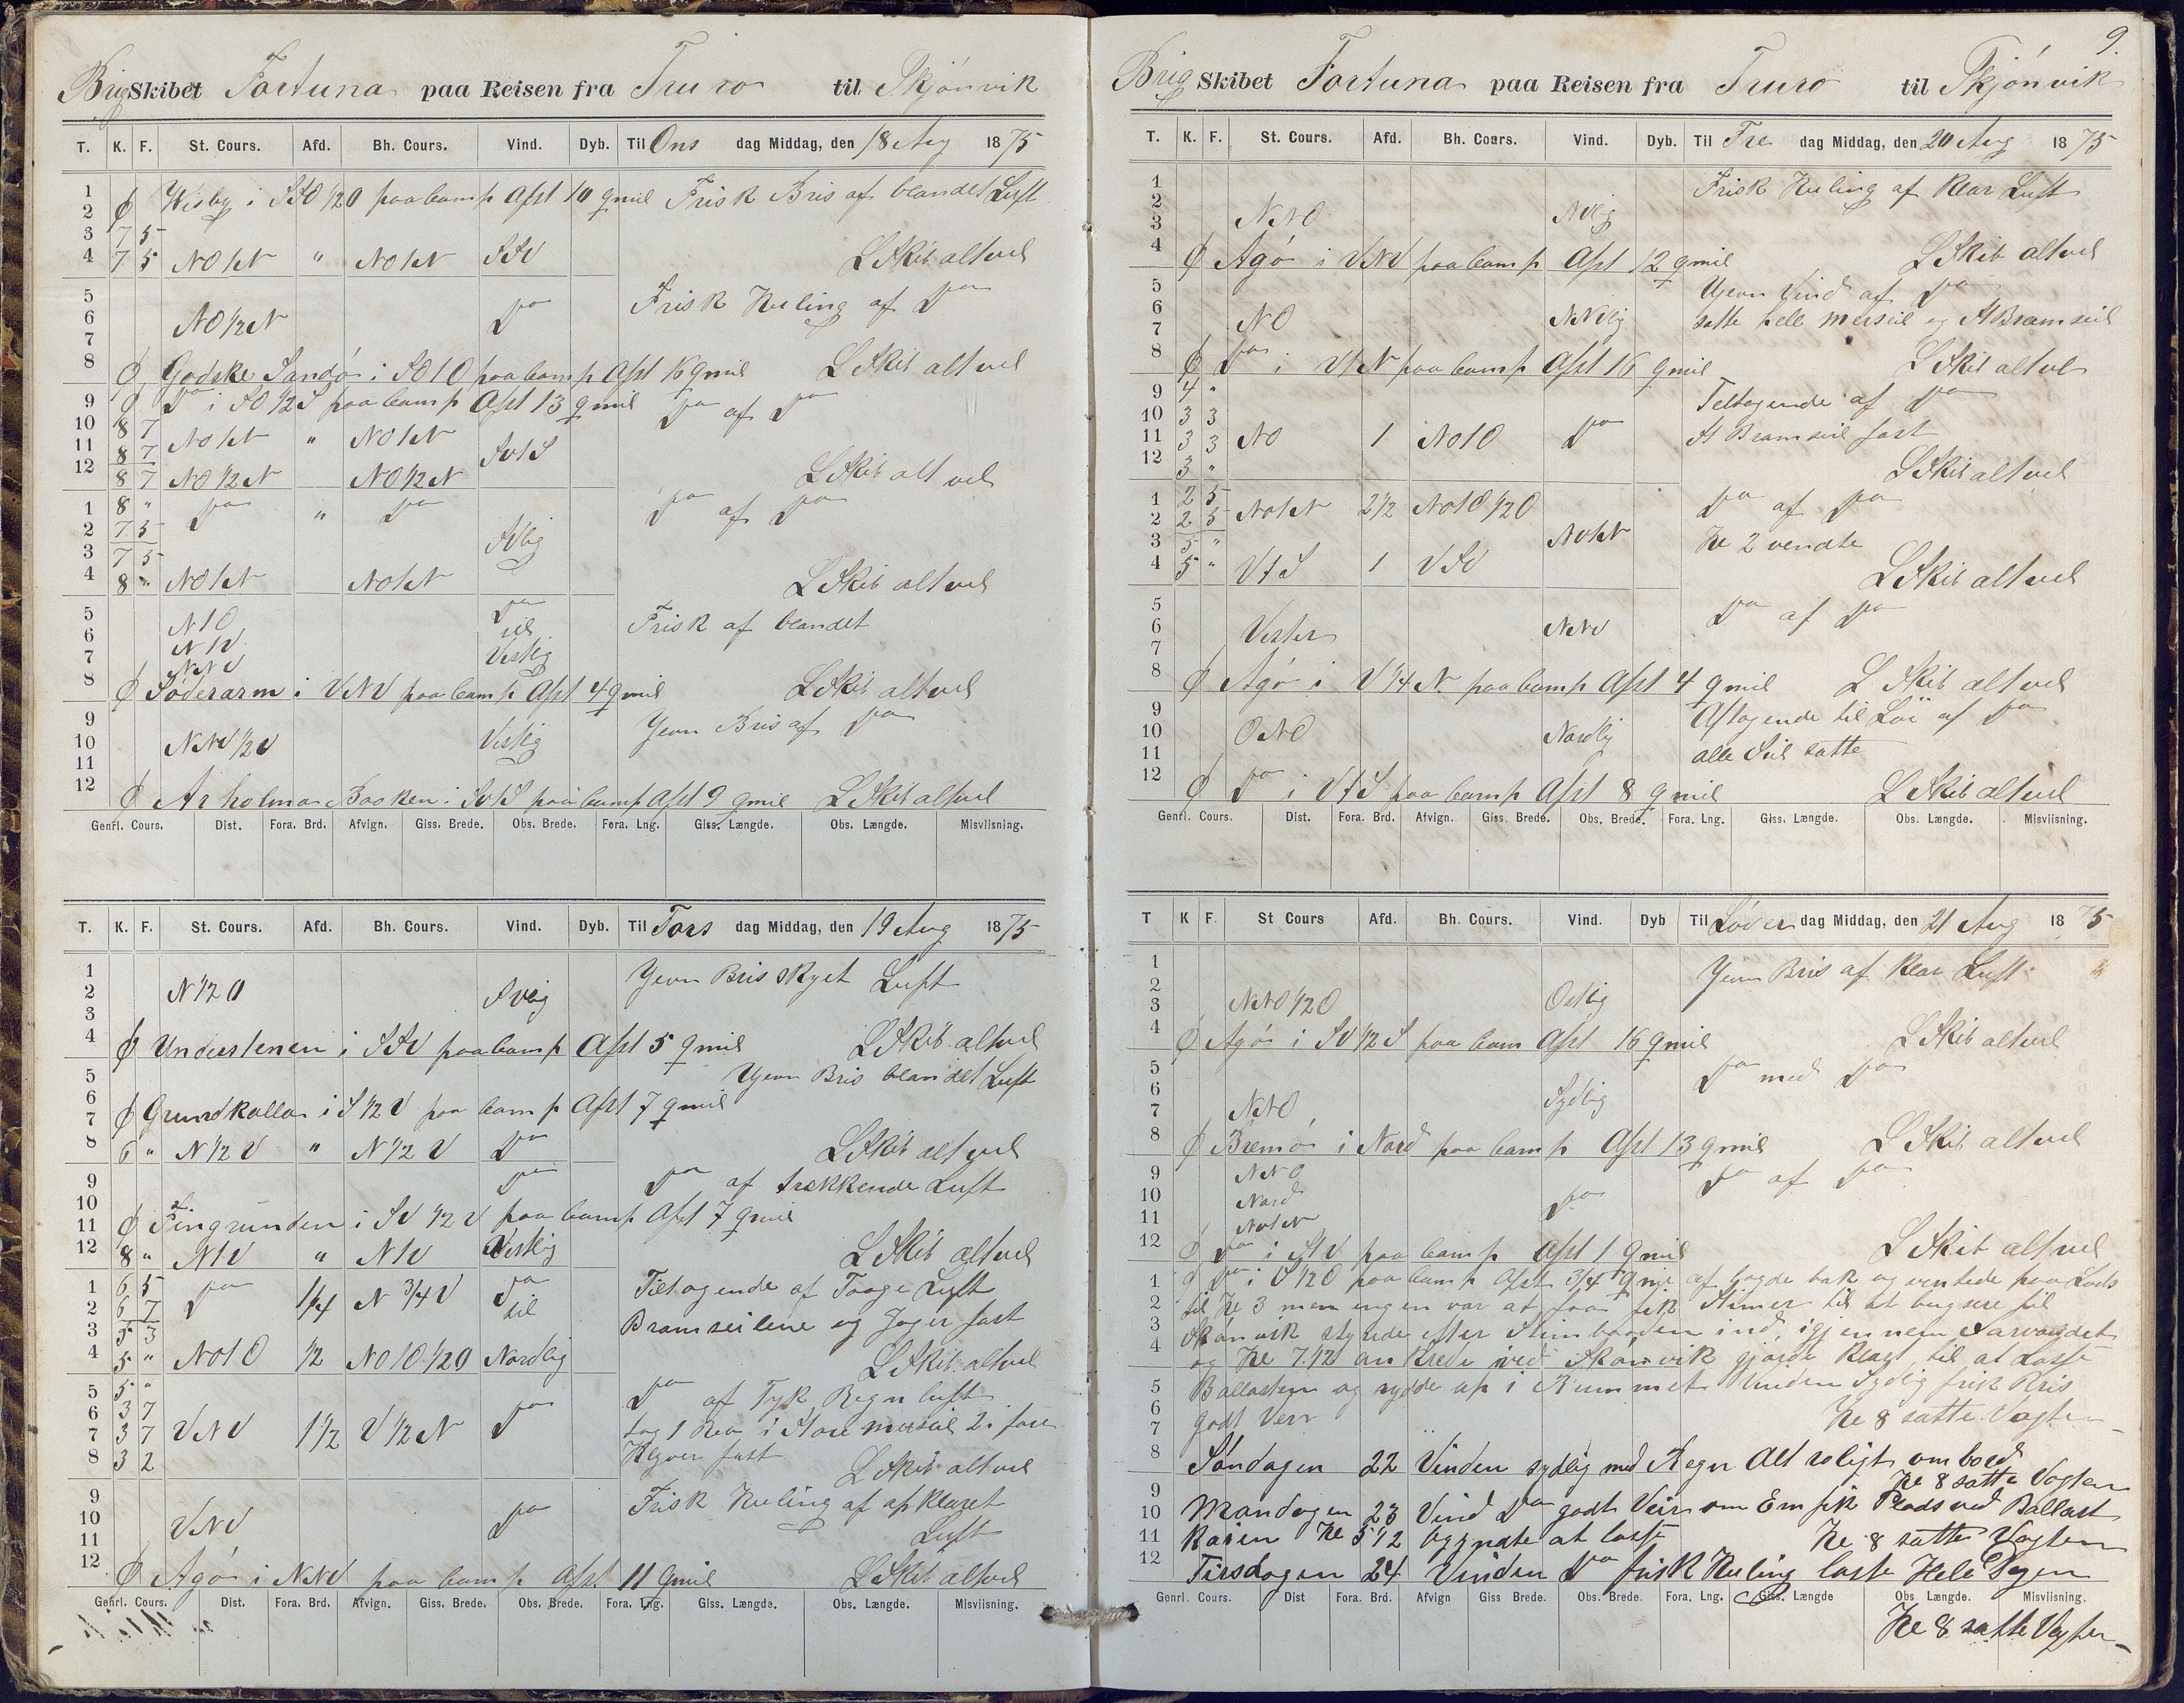 Brig Skibet Fortuna paa Reisen fra Truro til Skjönvik
T. K. F. St. Cours. Afd. Bh. Cours. Vind. Dyb. Til Ons dag Middag, den 18 Aug 1875
1 Wisby i SSO 1/2 O paa Comp Afst 10 qmil Frisk Bris af blandet Luft
2 ϕ
3 7 5
4 7 5 NO t N " NO t N SSV L Skib alt vel
5 Do Frisk Kuling af Do
6 NO 1/2 N
7
8 ϕ Godske Sandö i SO t O paa Comp Afst 16 qmil L Skib alt vel
9 ϕ Do i SO 1/2 S paa Comp Afst 13 qmil Do af Do
10 8 7 NO t N " NO t N
11 8 7 SV t S
12 8 7 NO 1/2 N NO 1/2 N L Skib alt vel
1 8 " Do " Do Do af Do
2 7 5
3 7 5 SVlig
4 8 " NO t N NO t N L Skib alt vel
5 N t O Do Frisk af blandet
6 N t V til
7 NNV Vestlig
8 ϕ Söderarm i VNV paa Comp Afst 4 qmil L Skib alt vel
9 Jevn Bris af Do
10 NNV 1/2 V Vestlig
11
12 ϕ Arholma Baaken i SV t S paa Comp Afst 9 qmil L Skib alt vel
Genrl. Cours. Dist. Fora. Brd. Afvign. Giss. Brede. Obs. Brede. Fora. Lng. Giss. Længde. Obs. Længde. Misviisning.
T. K. F. St. Cours. Afd. Bh. Cours. Vind. Dyb. Til Tors dag Middag, den 19 Aug 1875
1 Jevn Bris skyet Luft
2 N 1/2 O SVlig
3
4 ϕ Understenen i SSV paa Comp Afst 5 qmil L Skib alt vel
5 Ujevn Bris blandet Luft
6
7 ϕ Grundkallan i S 1/2 V paa Comp Afst 7 qmil
8 6 " N 1/2 V " N 1/2 V Do L Skib alt vel
9 Do Do af trekkende Luft
10
11 ϕ Fingrunden i SV 1/2 V paa Comp Afst 7 qmil
12 8 " N t V " N t V Vestlig L Skib alt vel
1 6 5 Do 1/4 N 3/4 V Do Tiltagende af Taage Luft
2 6 7 til
3 5 3 Bramseilene og Jager fast
4 5 " NO t O 1/2 NO t O 1/2 O Nordlig L Skib alt vel
5 5 " Do af Tyk Regn luft
6 3 7
7 3 7 VNV 1 1/2 V 1/2 N Do tog 1 Rev i Store mersseil 2 i fore
8 3 2 Klyver fast L Skib alt vel
9 Frisk Kuling af opklaret
10 VNV Do Luft
11
12 ϕ Agö i NNV paa Comp Afst 11 qmil L Skib alt vel
Genrl. Cours. Dist. Fora. Brd. Afvign. Giss. Brede. Obs. Brede. Fora. Lng. Giss. Længde. Obs. Længde. Misviisning.
9.
Brig Skibet Fortuna paa Reisen fra Truro til Skjönvik
T. K. F. St. Cours. Afd. Bh. Cours. Vind. Dyb. Til Fre dag Middag, den 20 Aug 1875
1 Frisk Kuling af Klar Luft
2
3 NNO NVlig
4 ϕ Agö i VNV paa Comp Afst 12 qmil L Skib alt vel
5 Ujevn Vind af Do
6 NO NNVlig satte hell merseil og St Bramseil
7
8 ϕ Do i V t N paa Comp Afst 16 qmil L Skib alt vel
9 4 " Teltagende af Do
10 3 3
11 3 3 NO 1 NO t O Do St Bramseil fast
12 3 " L Skib alt vel
1 2 5 NO t N 2 1/2 NO t O 1/2 O Do af Do
2 2 5
3 5 " NO t N Kl 2 vendte
4 5 " V t S 1 VSV L Skib alt vel
5 Do af Do
6 Vester NNV
7
8 ϕ Agö i V 1/4 N paa Comp Afst 4 qmil L Skib alt vel
9 Aftagende til Löi af Do
10 ONO Nordlig
11 alle Seil satte
12 ϕ Do i V t S paa Comp Afst 8 qmil L Skib alt vel
Genfl. Cours. Dist. Fora. Brd. Afvign. Giss. Brede. Obs. Brede. Fora. Lng. Giss. Længde. Obs. Længde. Misviisning.
T K F. St Cours Afd. Bh. Cours. Vind. Dyb Til Löver dag Middag, den 21 Aug 1875
1 Jevn Bris af klar Luft
2
3 NNO 1/2 O Ostlig
4 ϕ Agö i SV 1/2 S paa Com Afst 16 qmil L Skib alt vel
5 Do med Do
6
7 NNO Sydlig
8 ϕ Bremö i Nord paa Comp Afst 13 qmil L Skib alt vel
9 NNO Do af Do
10 Nord Do
11 NO t N
12 ϕ Do i S t V paa Comp Afst 1 qmil L Skib alt vel
1 ϕ Do i S 1/2 O paa Comp Afst 3/4 qmil af lagde bak og ventede paa Lods
2 til Kl 3 men engen var at faa fik Stimer til at bugsere til
3 Skönvik styrede efter Stimbaaden ind, igjennem
4 og Kl 7 1/2 ankrede ved Skönvik gjorde klart til at Losse
5 Ballasten og rydde op i Rummet Vinden Sydlig frisk Bris
6
7 godt Veir Kl 8 satte Vagten
8 Söndagen 22 Vinden sydlig med Regn Alt roligt ombord
9 Kl 8 satte Vagten
10 Mandagen 23 Vind Do godt Veir om Em fik Plads ved Ballast
11 kaien Kl 5 1/2 begyndte at losse Kl 8 satte Vagten
12 Tirsdagen 24 Vinden Do frisk Kuling losse Hele Dagen
Genrl. Cours. Dist Fora. Brd. Afvign Giss Brede. Obs. Brede. Fora. Lng. Giss. Længde Obs Længde. Misviisning.
Kl 8 satte Vagten